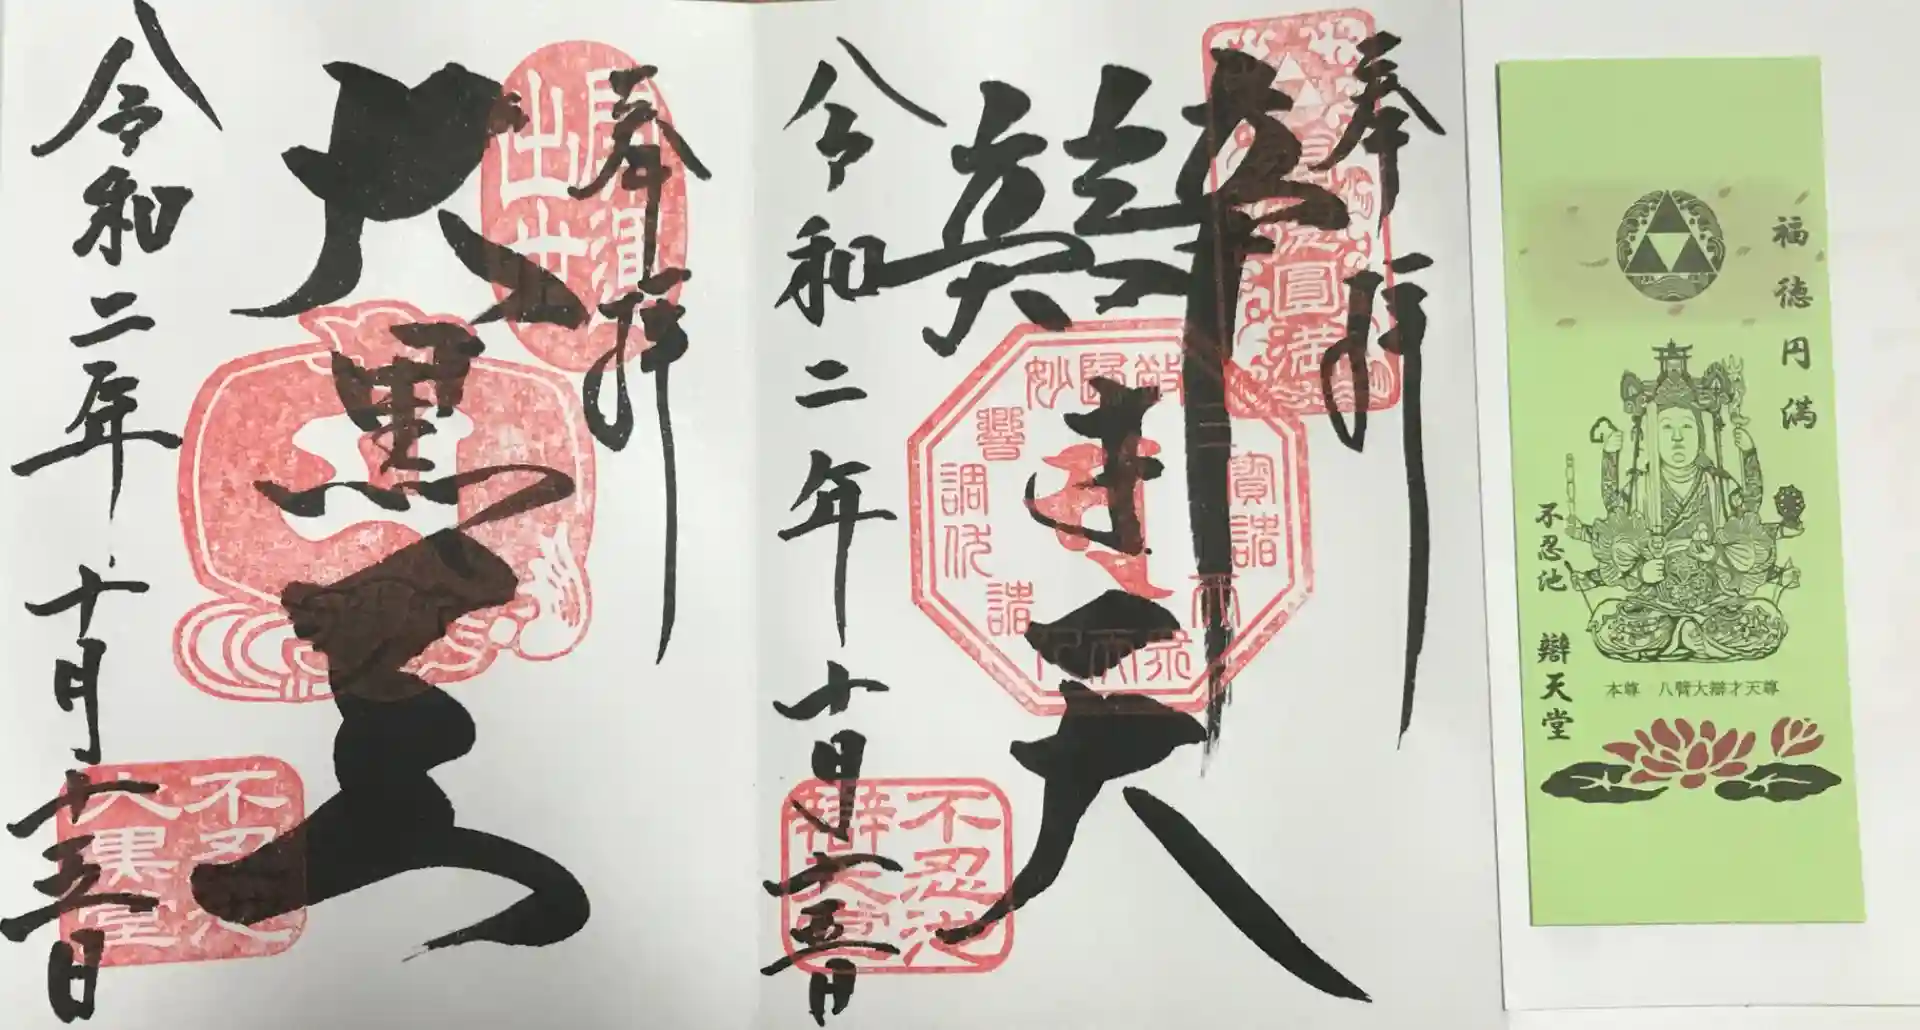 奉拝
大黒天
令和二年十月十五日
出世
不忍池
大黒堂
奉拝
辯才天
令和二年十月十五日
圓満
不忍池
辯天堂
福徳円満
不忍池 辯天堂
本尊 八臂大辯才天尊